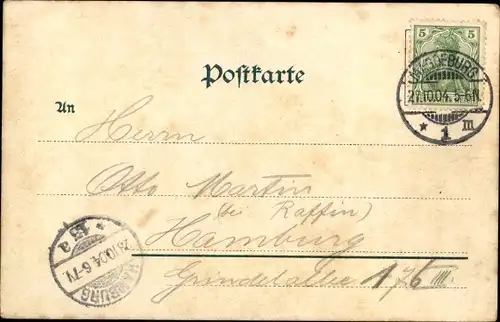 5 5
MAGDEBURG
27.10.04. 5-6N.
* 1 III
Postkarte
An
Herrn
Otto Martin
(bei Raffin)
Hamburg
Grindelallee 176 III.
* 13 a
28.10.04. 6-7V.
HAMBURG